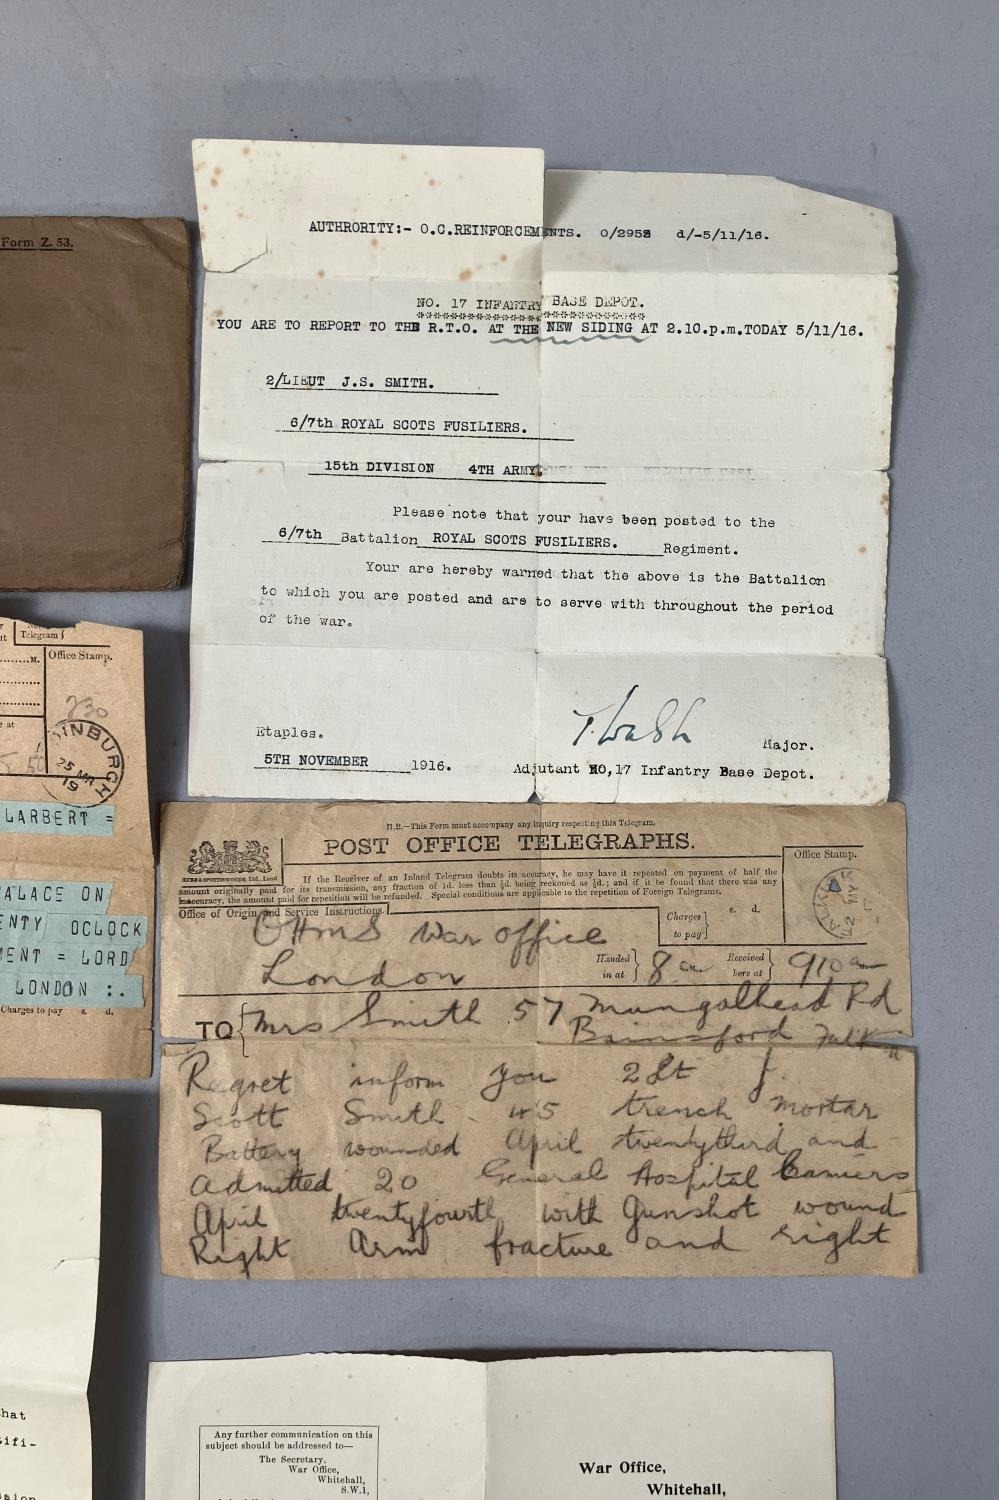 Form Z. 53.
AUTHRORITY:- O.C.REINFORCEMENTS. O/2952 d/-5/11/16.
NO. 17 INFANTRY BASE DEPOT.
YOU ARE TO REPORT TO THE R.T.O. AT THE NEW SIDING AT 2.10.p.m.TODAY 5/11/16.
2/LIEUT J.S. SMITH.
6/7th ROYAL SCOTS FUSILIERS.
15th DIVISION 4TH ARMY.
Please note that your have been posted to the
6/7th Battalion ROYAL SCOTS FUSILIERS. Regiment.
Your are hereby warned that the above is the Battalion
to which you are posted and are to serve with throughout the period
of the war.
T. Walsh
Etaples. Major.
5TH NOVEMBER 1916. Adjutant NO,17 Infantry Base Depot.
Telegram
M.
Office Stamp.
230
EDINBURGH
25 MR
19
LARBERT =
PALACE ON
ENTY OCLOCK
MENT = LORD
LONDON :.
Charges to pay s. d.
N.B.—This Form must accompany any inquiry respecting this Telegram.
POST OFFICE TELEGRAPHS.
If the Receiver of an Inland Telegram doubts its accuracy, he may have it repeated on payment of half the
amount originally paid for its transmission, any fraction of 1d. less than ½d. being reckoned as ½d.; and if it be found that there was any
inaccuracy, the amount paid for repetition will be refunded. Special conditions are applicable to the repetition of Foreign Telegrams.
Office Stamp.
Office of Origin and Service Instructions.
Charges to pay s. d.
OHMS War office
London
Handed in at 8 Received here at 910 am
TO Mrs Smith 57 Mungalhead Rd
Bainsford
Regret inform you 2Lt J.
Scott Smith 45 trench mortar
Battery wounded April twentythird and
admitted 20 General Hospital Camiers
April twentyfourth with Gunshot wound
Right Arm fracture and right
Any further communication on this
subject should be addressed to—
The Secretary,
War Office,
Whitehall,
S.W.1,
War Office,
Whitehall,
that
tifi-